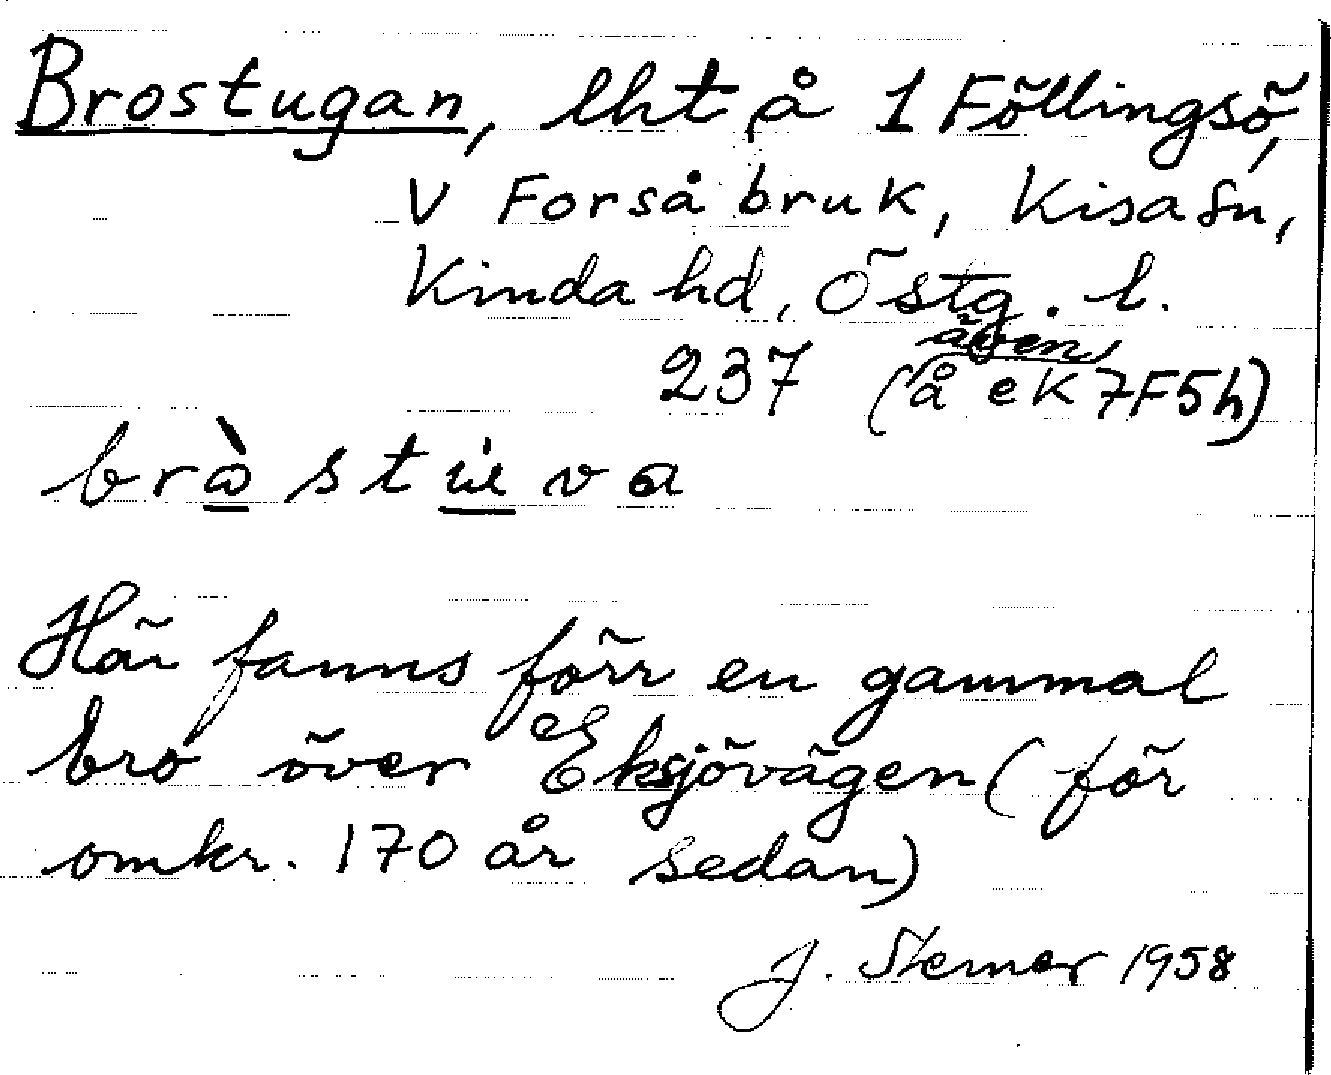 Brostugan, lht å 1 Föllingsö,
V Forså bruk, Kisa sn,
Kinda hd, Östg. l.
237 (även å ek 7F5h)
bròstu̇va
Här fanns förr en gammal
bro över Eksjövägen (för
omkr. 170 år sedan)
J. Sterner 1958